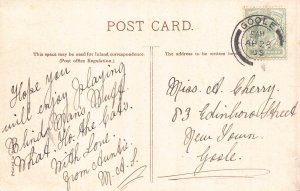 POST CARD.
This space may be used for Inland correspondence.
(Post office Regulation.)
The address to be written
GOOLE
AP 22
05
Hope you
will enjoy playing
Blind Man's Buff.
What Ho the Cats.
With love.
from Auntie.
M.A.S.
Miss A. Cherry.
83 Edinboro' Street
New Town.
Goole.